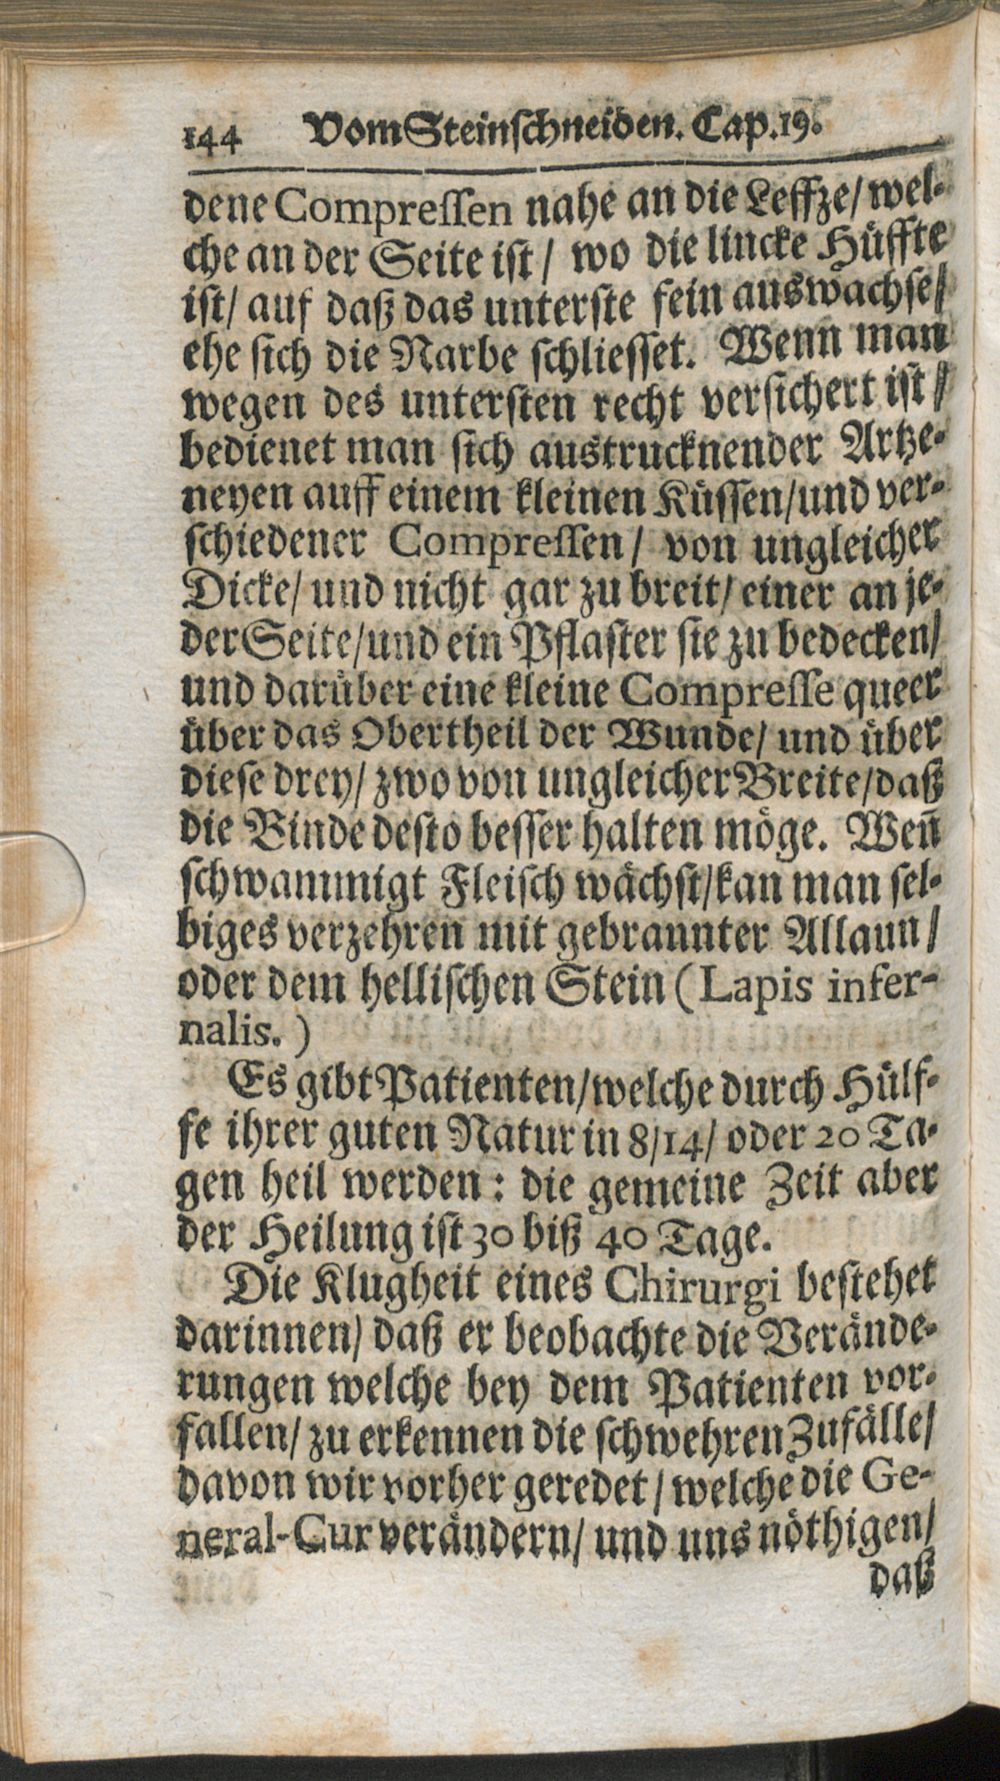 144 Vom Steinschneiden. Cap. 19.
dene Compressen nahe an die Leffze/ wel-
che an der Seite ist/ wo die lincke Hüffte
ist/ auf daß das unterste fein auswachse/
ehe sich die Narbe schliesset. Wenn man
wegen des untersten recht versichert ist/
bedienet man sich austrucknender Artze-
neyen auff einem kleinen Küssen/ und ver-
schiedener Compressen/ von ungleicher
Dicke/ und nicht gar zu breit/ einer an je-
der Seite/ und ein Pflaster sie zu bedecken/
und darüber eine kleine Compresse queer
über das Obertheil der Wunde/ und über
diese drey/ zwo von ungleicher Breite/ daß
die Binde desto besser halten möge. Wen̄
schwammigt Fleisch wächst/ kan man sel-
biges verzehren mit gebrannter Allaun/
oder dem hellischen Stein (Lapis infer-
nalis.)
Es gibt Patienten/ welche durch Hülf-
fe ihrer guten Natur in 8/ 14/ oder 20 Ta-
gen heil werden: die gemeine Zeit aber
der Heilung ist 30 biß 40 Tage.
Die Klugheit eines Chirurgi bestehet
darinnen/ daß er beobachte die Verände-
rungen welche bey dem Patienten vor-
fallen/ zu erkennen die schwehren Zufälle/
davon wir vorher geredet/ welche die Ge-
neral-Cur verändern/ und uns nöthigen/
daß